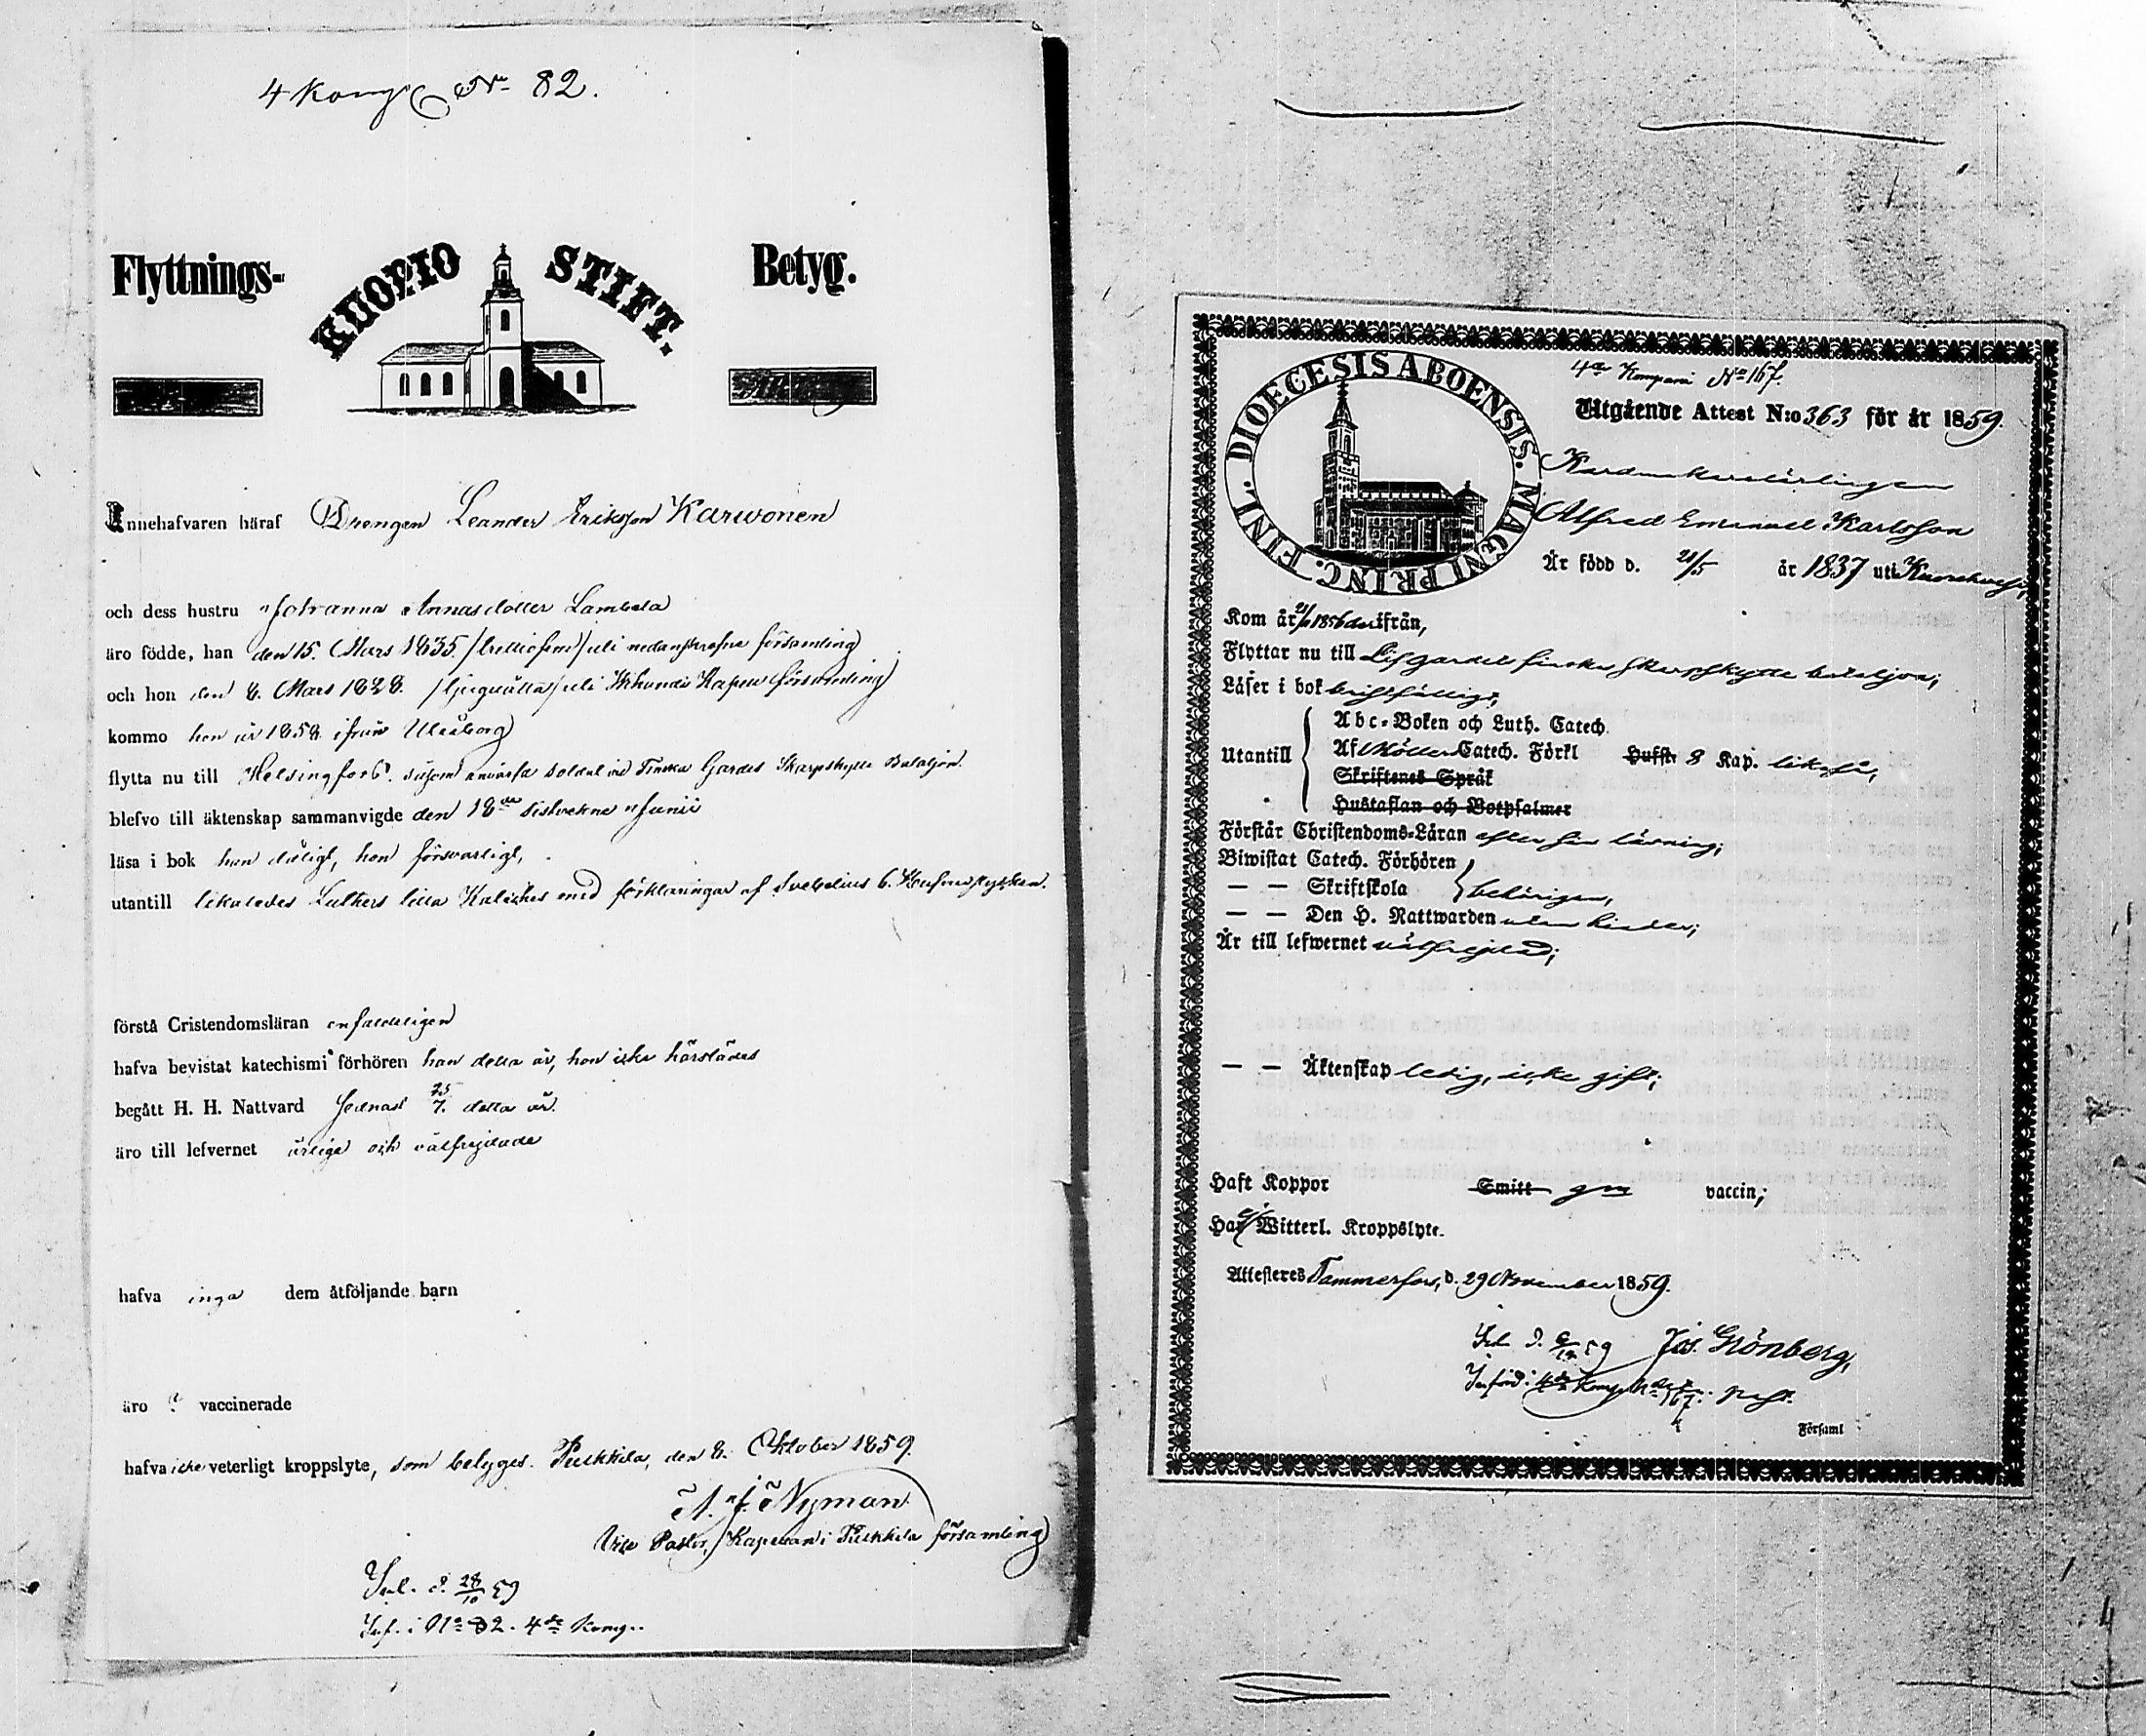 4 Komp. No 82.
Flyttnings- KUOPIO STIFT. Betyg.
Innehafvaren häraf Drengen Leander Eriksson Karwonen
och dess hustru Johanna Annasdotter Lambela
äro födde, han den 15. Mars 1835. /trettiofem/ uti nedanskrefne församling
och hon den 8. Mars 1828. /tjuguåtta/ uti Kapell församling
kommo hon år 1858 ifrån Uleåborg
flytta nu till Helsingfors, såsom soldat vid Finska Gardes Skarpskytte Bataljon.
blefvo till äktenskap sammanvigde den 18de sistvekne Junii
läsa i bok han dåligt, hon försvarligt,
utantill likaledes Luthers lilla Kateches med förklaringar af Svebelius 6. Hufvudstycken.
förstå Cristendomsläran enfaldeligen
hafva bevistat katechismi förhören han detta år, hon icke härstädes
begått H. H. Nattvard sednast 25/7. detta år.
äro till lefvernet ärliga och välfrejdade
hafva inga dem åtföljande barn
äro ? vaccinerade
hafva icke veterligt kroppslyte, som betyges. Pulkkila, den 8. Oktober 1859.
A. J. Nyman
Vice Pastor, Kapellan i Pulkkila församling
Inl. d. 28/10 59
Inf. i No 82. 4de Komp.
DIOECESIS ABOENSIS. MAGNI PRINC. FINL.
4de Kompani No 167.
Utgående Attest N:o 363 för år 1859.
Kardmakarelärlingen
Alfred Emanuel Karlsson
Är född d. 21/5 år 1837 uti Kuorehvesi,
Kom år 1856 derifrån,
Flyttar nu till Lifgardets finska skarpskytte bataljon;
Läser i bok bristfälligt,
Utantill
Abc-Boken och Luth. Catech.
Af Möllers Catech. Förkl Hufst. 8 Kap. likaså,
Skriftenes Språk
Hustaflan och Botpsalmer
Förstår Christendoms-Läran efter sin läsning;
Biwistat Catech. Förhören
— — Skriftskola behörigen,
— — Den H. Nattwarden utan hinder;
Är till lefwernet välfrejdad;
— — Äktenskap ledig, icke gift;
Haft Koppor Smitt gm vaccin;
Har ej Witterl. Kroppslyte.
Attesteres Tammerfors, d. 29 November 1859.
Inl. d. 6/12 59 Jos. Grönberg,
Införd i 4de Komp. No 167. past.
Församl